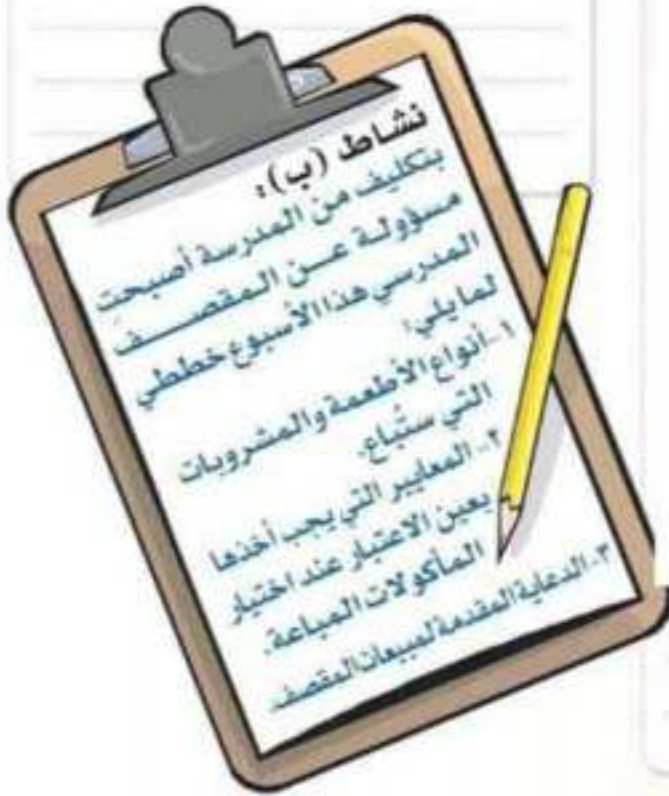 نشاط (ب):
بتكليف من المدرسة أصبحتِ
مسؤولة عن المقصف
المدرسي هذا الأسبوع خططي
لما يلي:
١- أنواع الأطعمة والمشروبات
التي ستُباع.
٢- المعايير التي يجب أخذها
بعين الاعتبار عند اختيار
المأكولات المباعة.
٣- الدعاية المقدمة لمبيعات المقصف.